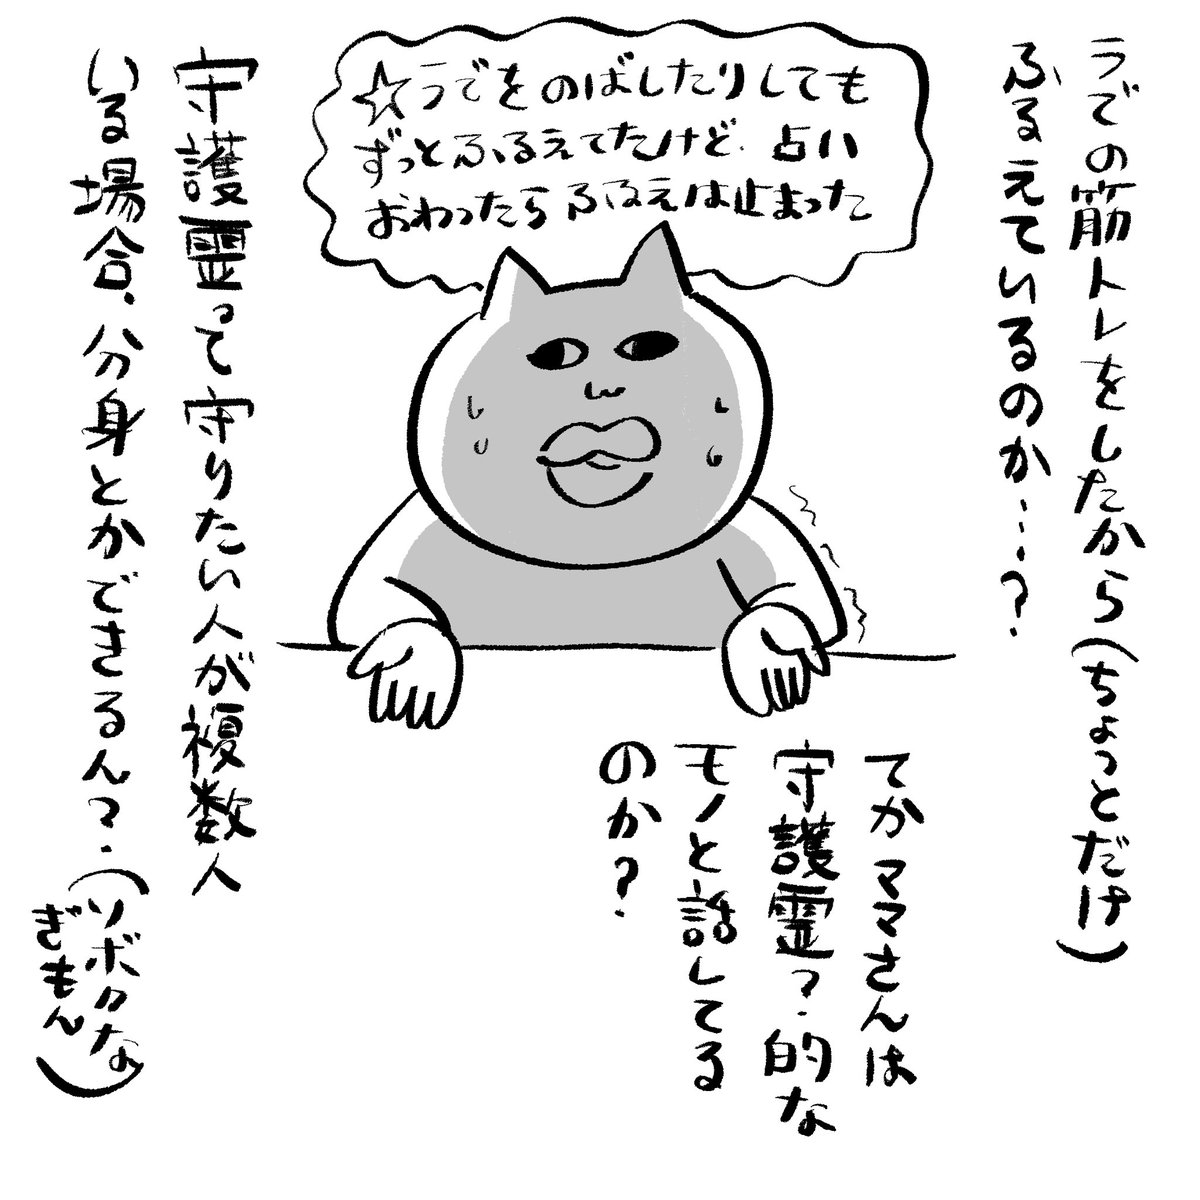 うでの筋トレをしたから(ちょっとだけ)
ふるえているのか…?
☆うでをのばしたりしても
ずっとふるえてたけど、占い
おわったらふるえは止まった
てかママさんは
守護霊?的な
モノと話してる
のか?
守護霊って守りたい人が複数人
いる場合、分身とかできるん?(ソボクな
ぎもん)